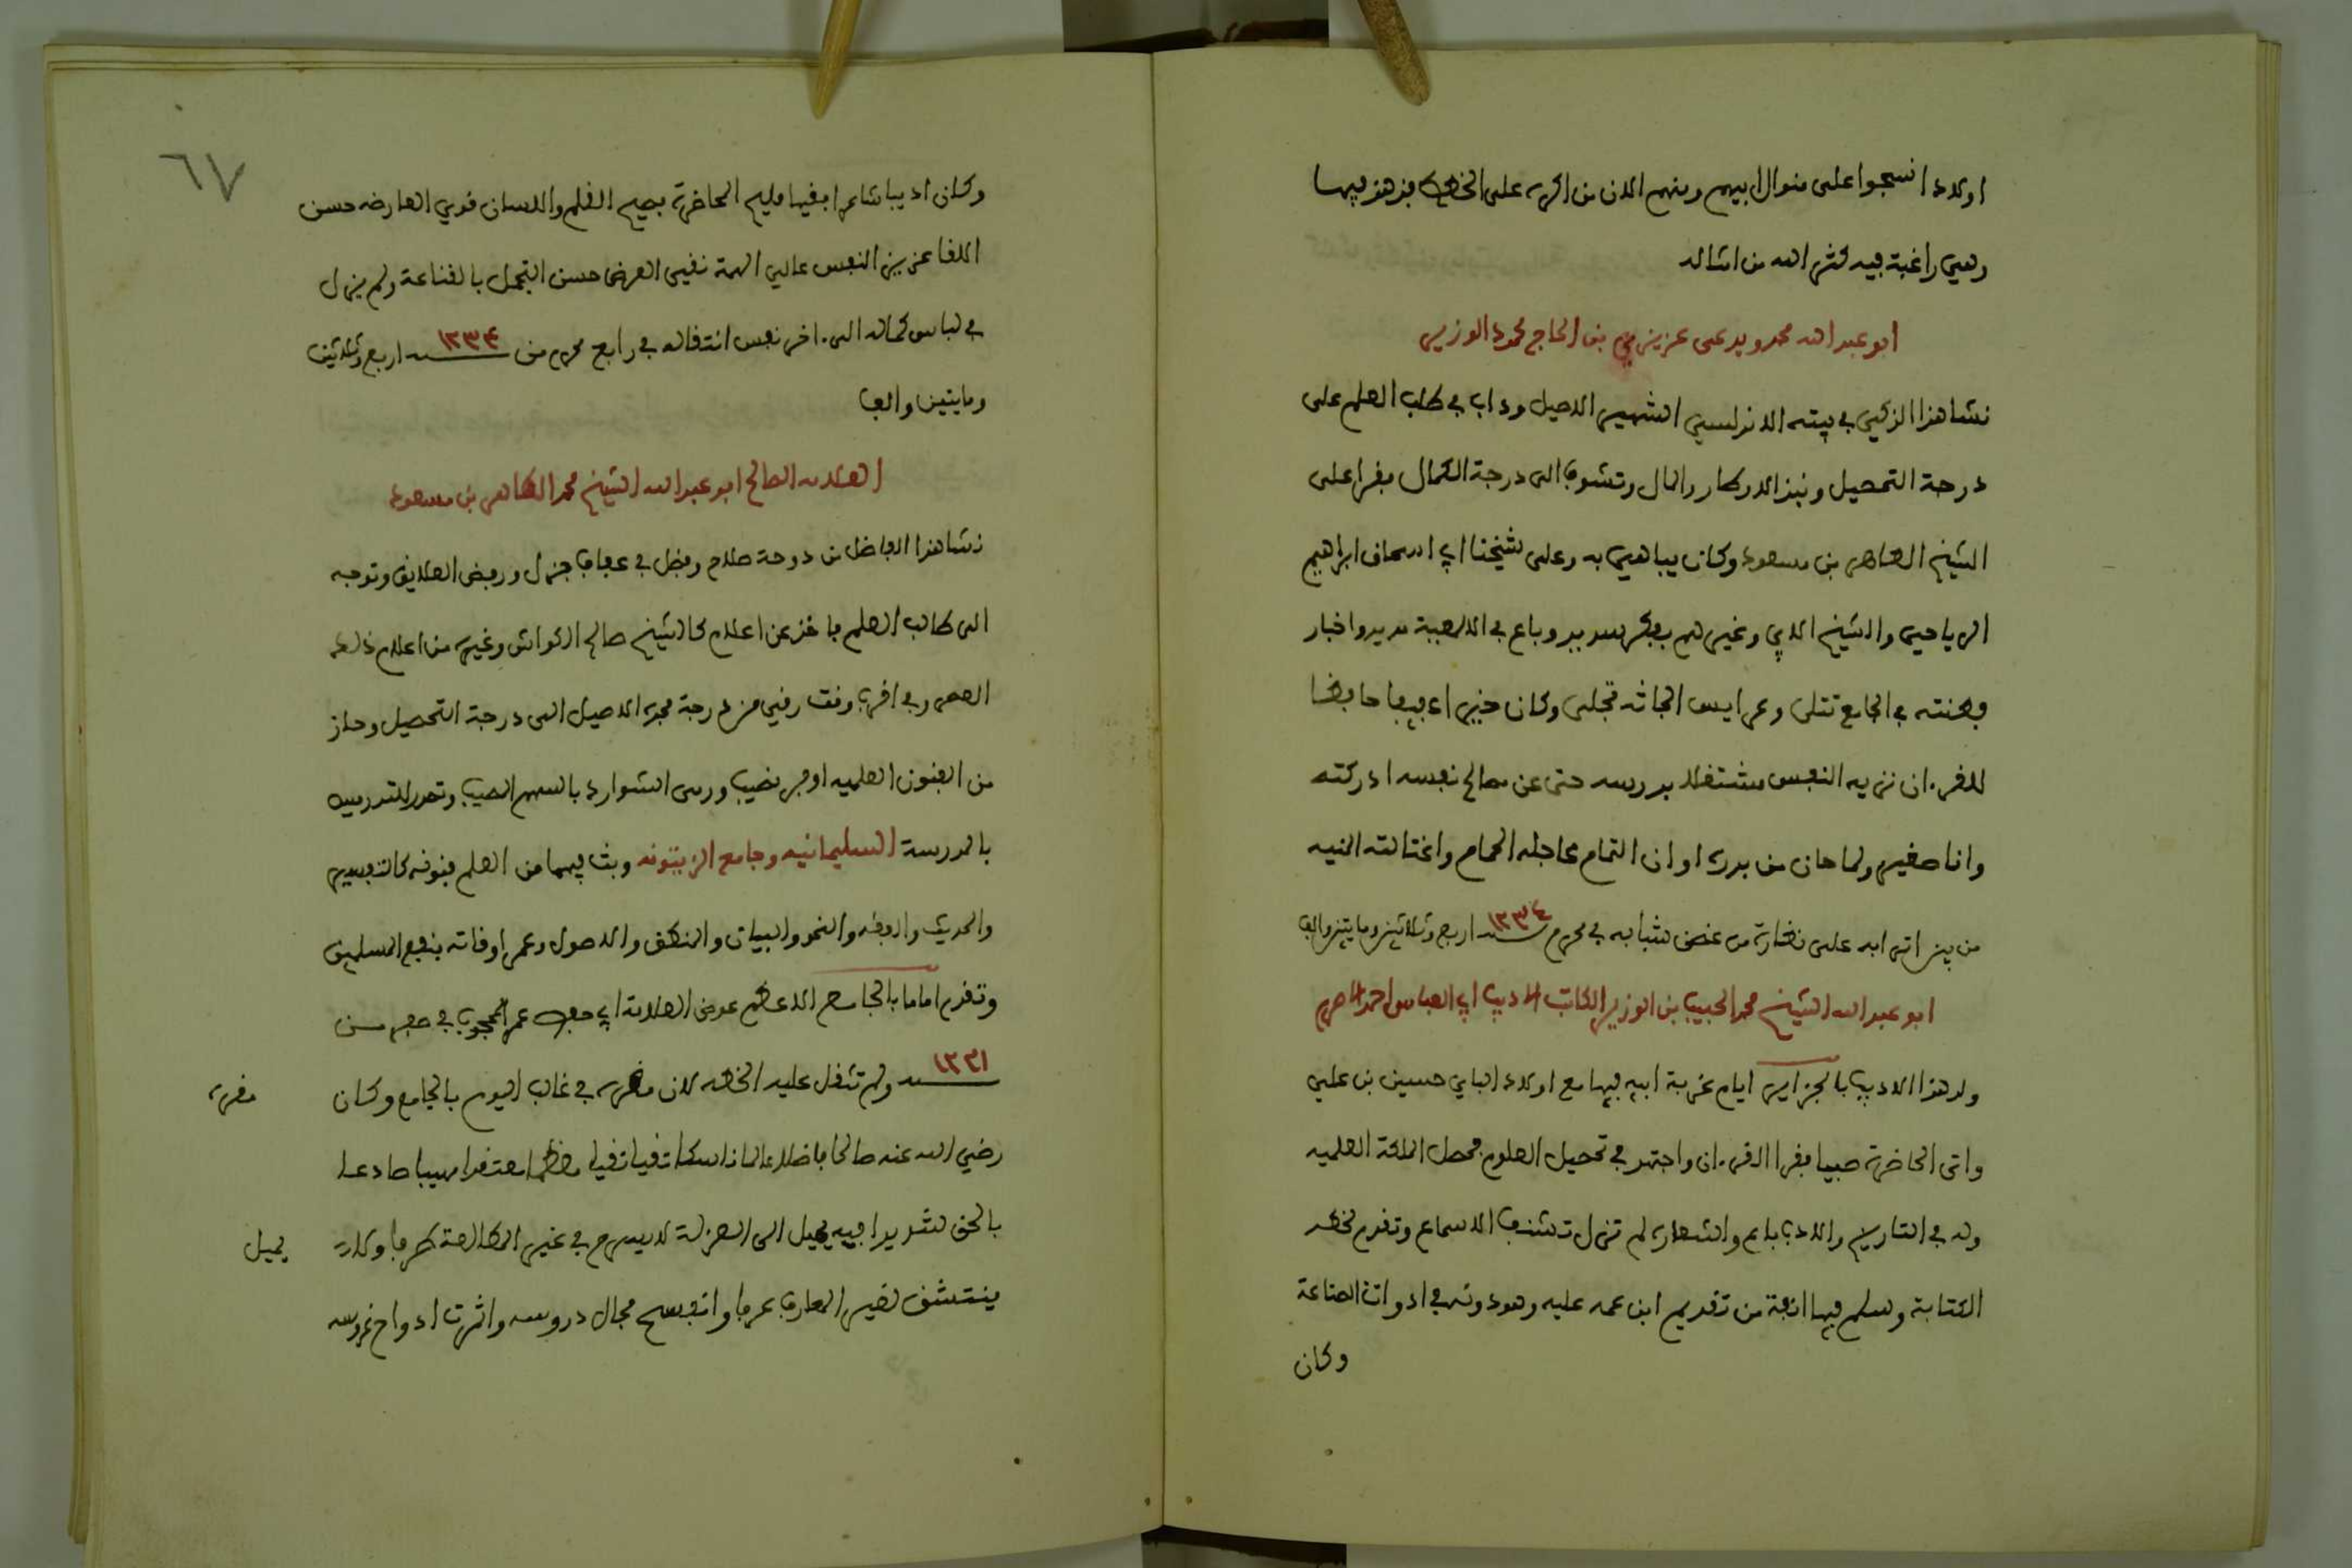 اولادا نسجوا على منوال ابيهم ومنهم الان من اكره على الخطة فزهد فيها
وهي راغبة فيه كثر الله من امثاله
ابو عبد الله محمد ويدعى عزيز بن الحاج محمود الوزير
نشا هذا الزكي في بيته الاندلسي الشهير الاصيل وداب في طلب العلم على
درجة التحصيل ونبذ الاوطار والمال وتشوف الى درجة الكمال فقرا على
الشيخ الطاهر بن مسعود وكان يباهي به وعلى شيخنا ابي اسحاق ابراهيم
الرياحي والشيخ الابي وغيرهم بفكر سديد وباع في الالمعية مديد واخبار
فطنته في الجامع تتلى وعرايس ابحاثه تجلى وكان خيرا عفيفا حافظا
للقرءان نزيه النفس مشتغلا بدرسه حتى عن مصالح نفسه ادركته
وانا صغير ولما حان من بدره اوان التمام عاجله الحمام واغتالته المنيه
من بين اترابه على نضارة من غصن شبابه في محرم سنة ١٢٣٤ اربع وثلاثين ومايتين والف
ابو عبد الله الشيخ محمد الحبيب بن الوزير الكاتب الاديب ابي العباس احمد الاصرم
ولد هذا الاديب بالجزاير ايام غربة ابيه فيها مع اولاد الباي حسين بن علي
واتى الحاضرة صبيا فقرا القرءان واجتهد في تحصيل العلوم فحصل الملكة العلميه
وله في التاريخ والادب باع واشعاره لم تزل تشنف الاسماع وتقدم لخطة
الكتابة وسلم فيها انفة من تقديم ابن عمه عليه وهو دونه في ادوات الصناعة
وكان
٦٧
وكان اديبا شاعرا فقيها مليح المحاضرة فصيح القلم واللسان قوي العارضه حسن
اللقا عزيز النفس عالي الهمة نقي العرض حسن التجمل بالقناعة ولم يزل
في لباس كماله الى ءاخر نفس انتقاله في رابع محرم من سنة ١٢٣٤ اربع وثلاثين
ومايتين والف
العلامه الصالح ابو عبد الله الشيخ محمد الطاهر بن مسعود
نشا هذا الفاضل من دوحة صلاح وفضل في عفاف جزل ورفض العلايق وتوجه
الى طلب العلم فاخذ عن اعلام كالشيخ صالح الكواش وغيره من اعلام ذلك
العصر وفي اقرب وقت رقي من درجة مجده الاصيل الى درجة التحصيل وحاز
من الفنون العلميه اوفر نصيب ورمى الشوارد بالسهم المصيب وتصدر للتدريس
بالمدرسة السليمانيه وجامع الزيتونه وبث فيهما من العلم فنونه كالتفسير
والحديث والفقه والنحو والبيان والمنطق والاصول وعمر اوقاته بنفع المسلمين
وتقدم اماما بالجامع الاعظم عوض العلامة ابي حفص عمر المحجوب في صفر سنة
١٢٣١ ولم تثقل عليه الخطه لان مقره في غالب اليوم بالجامع وكان
مقره
رضي الله عنه صالحا فاضلا عالما ناسكا تقيا نقيا معظما معتقدا مهيبا صادعا
بالحق شديدا فيه يميل الى العزلة لا يسرح في غير المطالعة طرفا ولا
يميل
ينتشق لغير المعارف عرفا وانفسح مجال دروسه واثمرت ادواح غروسه